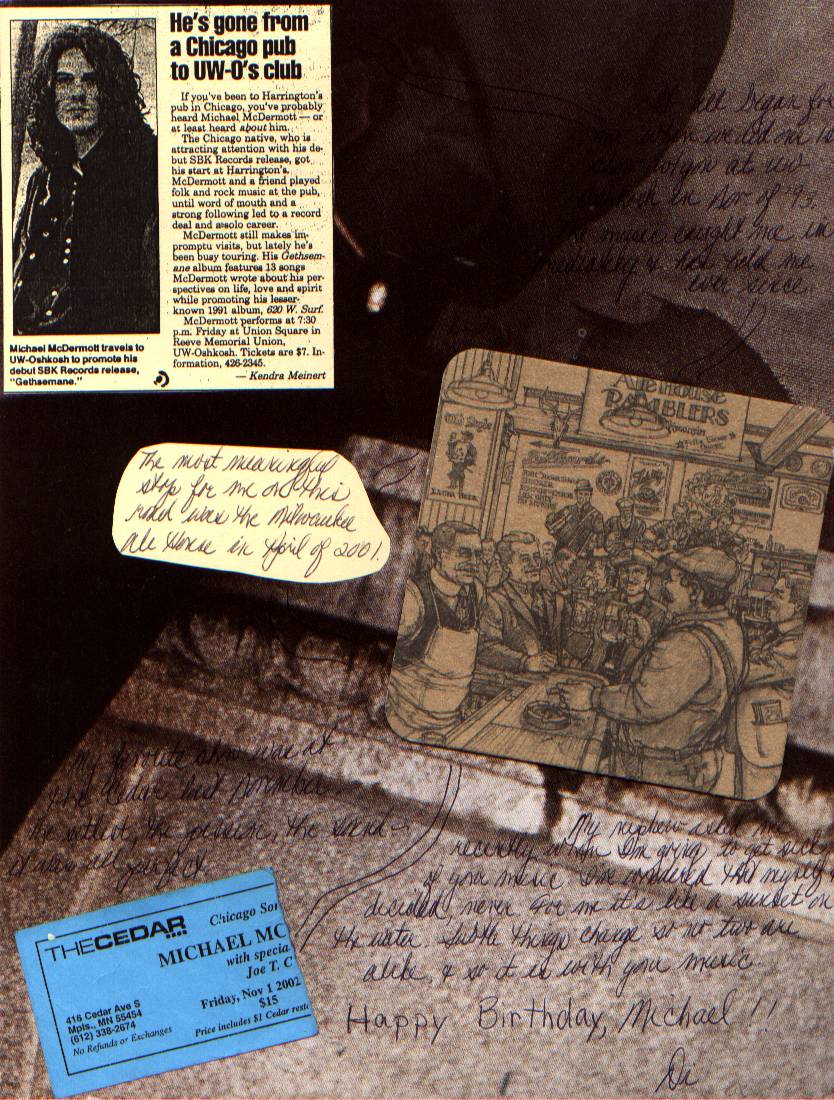 He's gone from
a Chicago pub
to UW-O's club
If you've been to Harrington's
pub in Chicago, you've probably
heard Michael McDermott — or
at least heard about him.
The Chicago native, who is
attracting attention with his de-
but SBK Records release, got
his start at Harrington's.
McDermott and a friend played
folk and rock music at the pub,
until word of mouth and a
strong following led to a record
deal and a solo career.
McDermott still makes im-
promptu visits, but lately he's
been busy touring. His Gethsem-
ane album features 13 songs
McDermott wrote about his per-
spectives on life, love and spirit
while promoting his lesser-
known 1991 album, 620 W. Surf.
McDermott performs at 7:30
p.m. Friday at Union Square in
Reeve Memorial Union,
UW-Oshkosh. Tickets are $7. In-
formation, 426-2345.
— Kendra Meinert
Michael McDermott travels to
UW-Oshkosh to promote his
debut SBK Records release,
"Gethsemane."
began for
in
of '93.
me in
told me
Ale House
RAMBLERS
The most meaningful
stop for me on this
road was the Milwaukee
Ale House in April of 2001.
My favorite show was at
the Cedar last November
the setlist, the passion, the sound-
it was all perfect
My nephew asked me
recently when I'm going to get sick
of your music. I've wondered that myself &
decided, never. For me it's like a sunset on
the water. Subtle things change so no two are
alike, & so it is with your music.
Happy Birthday, Michael!!
Di
THECEDAR
Chicago Son
MICHAEL MC
with specia
Joe T. C
Friday, Nov 1 2002
$15
Price includes $1 Cedar resto
416 Cedar Ave S
Mpls., MN 55454
(612) 338-2674
No Refunds or Exchanges